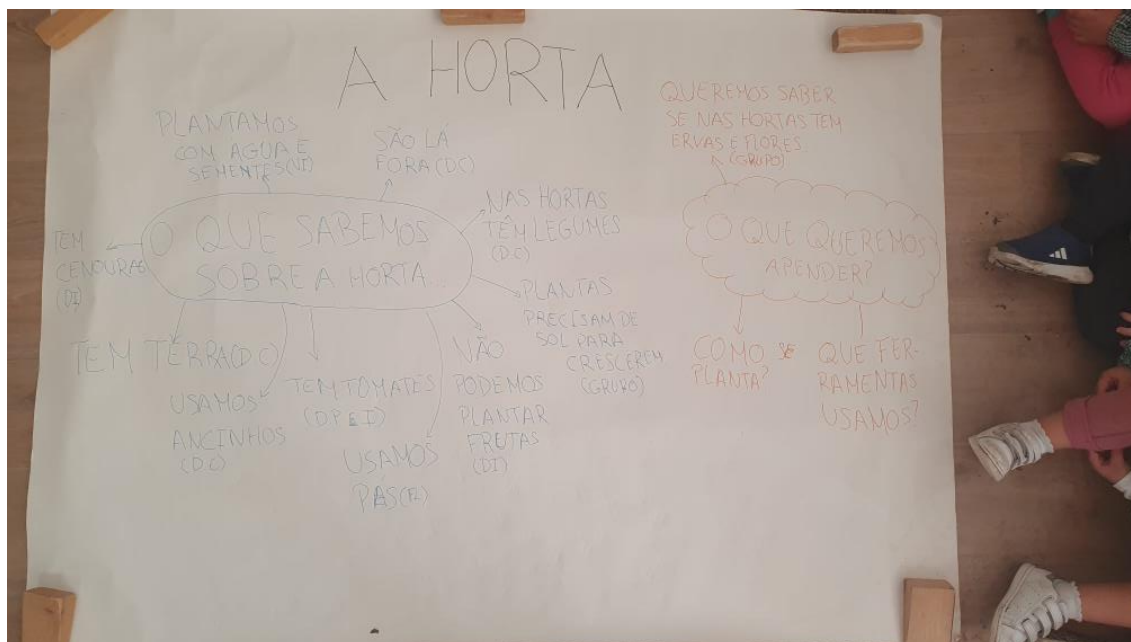 A HORTA
PLANTAMOS
COM AGUA E
SEMENTES (VT)
SÃO LÁ
FORA (DC)
O QUE SABEMOS
SOBRE A HORTA...
NAS HORTAS
TÊM LEGUMES
(D.C)
TEM
CENOURAS
(DI)
PLANTAS
PRECISAM DE
SOL PARA
CRESCEREM
(GRUPO)
TEM TERRA (D C)
USAMOS
ANCINHOS
(D.C)
TEM TOMATES
(D.P E I)
USAMOS
PÁS (FL)
NÃO
PODEMOS
PLANTAR
FRUTAS
(DI)
QUEREMOS SABER
SE NAS HORTAS TEM
ERVAS E FLORES
(GRUPO)
O QUE QUEREMOS
APENDER?
COMO SE
PLANTA?
QUE FER-
RAMENTAS
USAMOS?